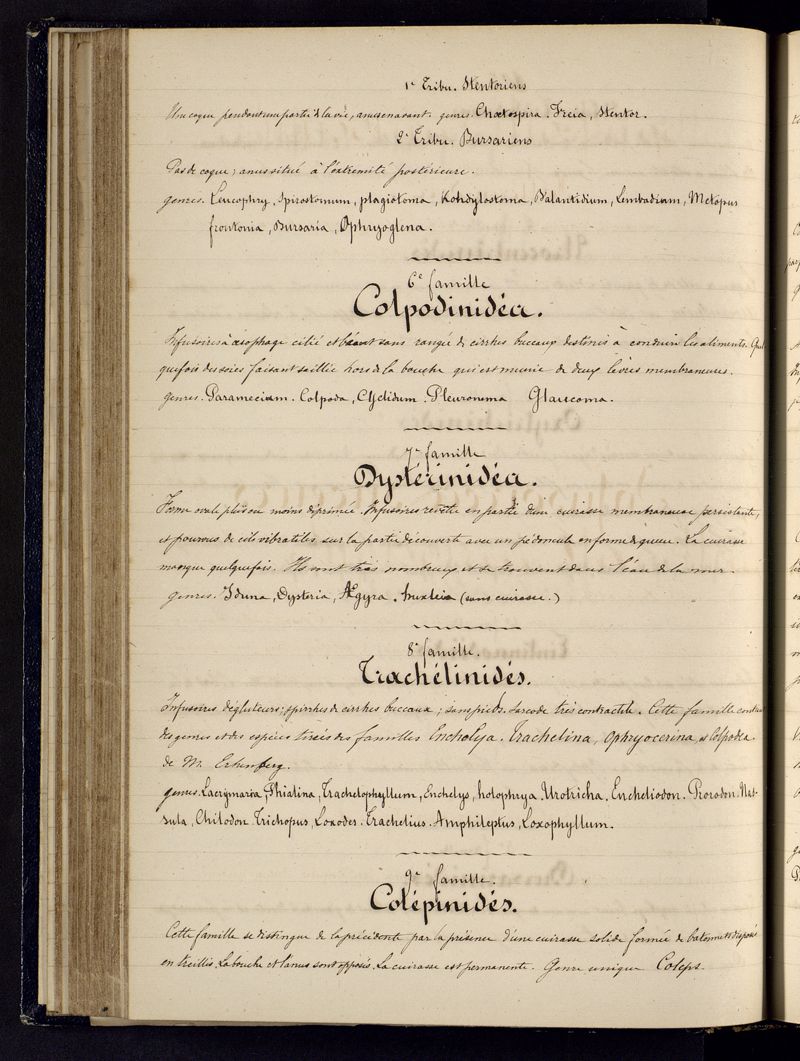 1e Tribu. Stentoriens
Une coque pendant une partie de la vie, anus en avant. genres. Chœtospira. Freia, Stentor.
2e Tribu. Bursariens
Pas de coque; anus situé à l'extremité postérieure.
genres. Leucophry, Spirostomum, plagiotoma, Kondylostoma, Balantidium, Lembadium, Metopus
frontonia, Bursaria, Ophryoglena.
6e famille
Colpodinidéa.
Infusoires à œsophage cilié et béant sans rangée de cirrhes buccaux destinés à conduire les aliments. Quel
quefois des soies faisant saillie hors de la bouche qui est munie de deux lèvres membraneuses.
genres. Paramecium. Colpoda, Cyclidum. Pleuronema Glaucoma.
7e famille
Dystérinidéa.
Forme ovale plus ou moins déprimée. Infusoires revêtu en partie d'une cuirasse membraneuse persistante,
et pourvus de cils vibratiles sur la partie découverte avec un pédoncule en forme de queue. La cuirasse
manque quelquefois. Ils sont très nombreux et se trouvent dans l'eau de la mer.
genres. Iduna, Dysteria, Ægyra. Huxleia (sans cuirasse.)
8e famille.
Trachélinidés.
Infusoires dégluteurs; spirrhes de cirrhes buccaux; sans pieds. Sarcode très contractile. Cette famille contient
des genres et des espèces tirées des familles Enchelya. Trachelina, Ophryocerina, et Colpodea
de M. Erhenberg.
genres. Lacrymaria Phialina, Trachelophyllum, Enchelys, holophrya. Urotricha, Encheliodon. Prorodon. Nas-
sula, Chilodon. Trichopus, Loxodes. Trachelius. Amphileptus, Loxophyllum.
9e famille.
Colépinidés.
Cette famille se distingue de la précédente par la présence d'une cuirasse solide formée de batonnets disposés
en treillis. La bouche et l'anus sont opposés. La cuirasse est permanente. Genre unique Coleps.